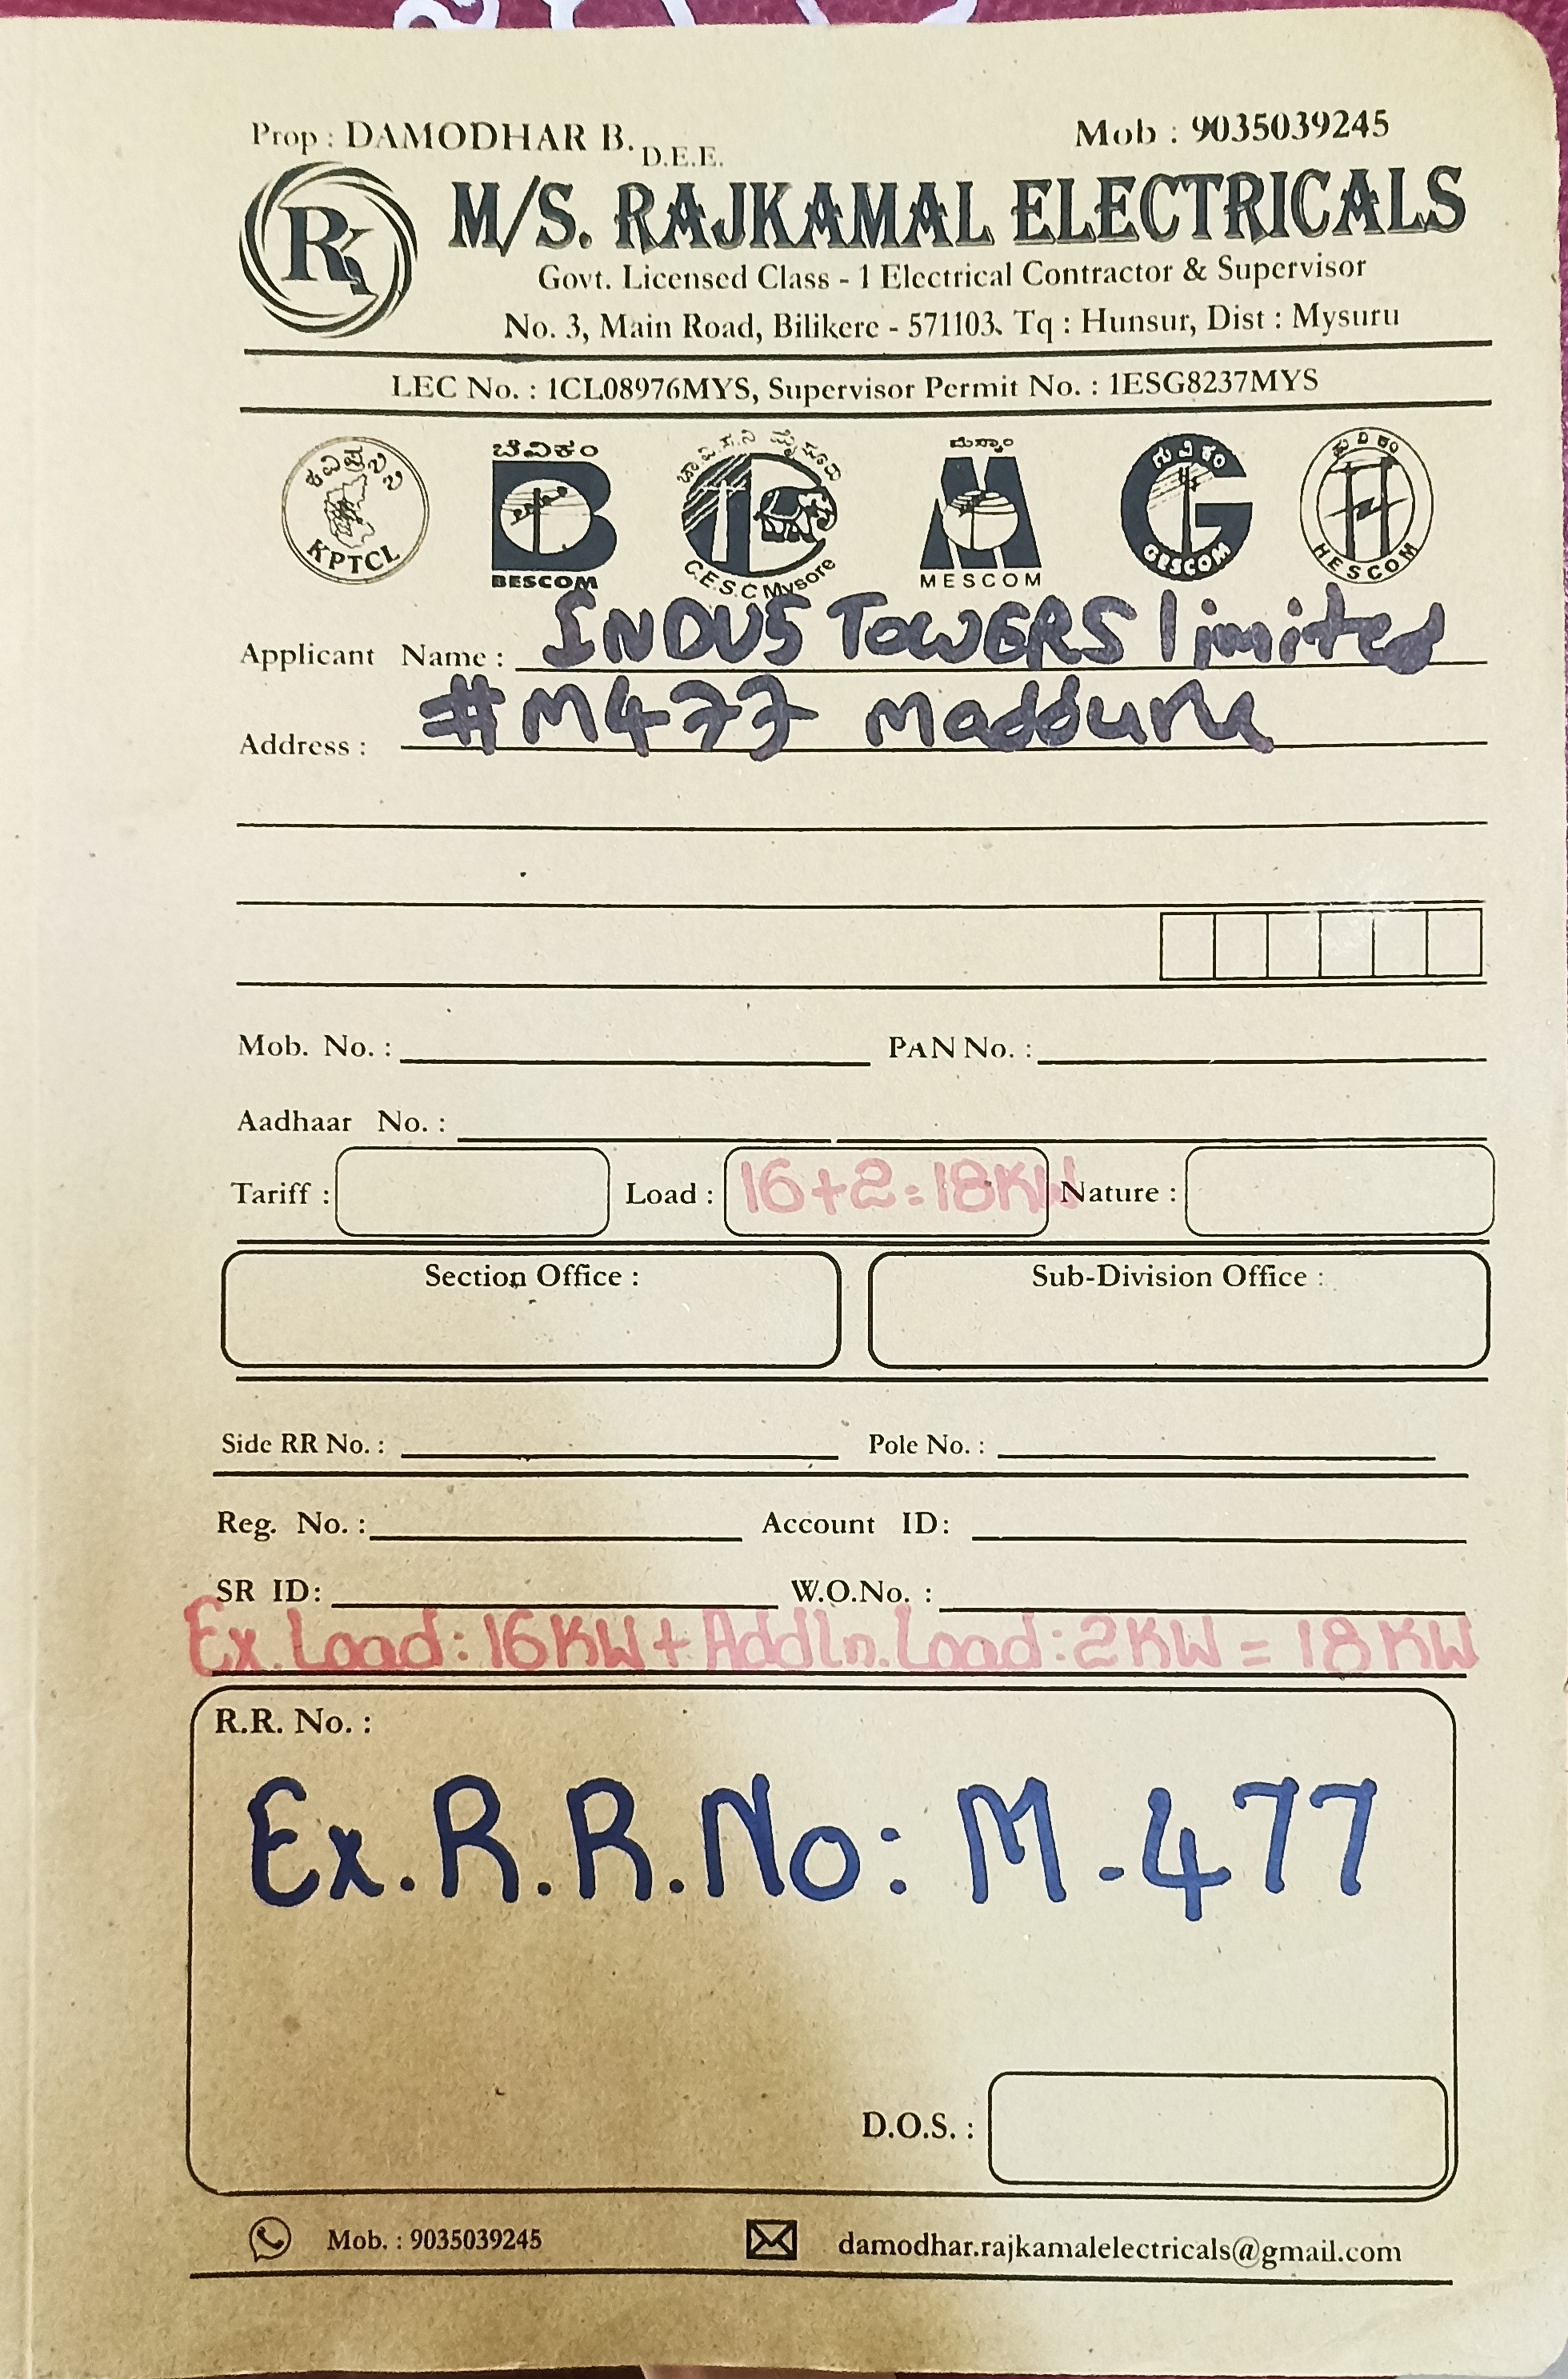 Prop : DAMODHAR B. D.E.E. Mob : 9035039245
RK M/S. RAJKAMAL ELECTRICALS
Govt. Licensed Class - 1 Electrical Contractor & Supervisor
No. 3, Main Road, Bilikere - 571103. Tq : Hunsur, Dist : Mysuru
LEC No. : 1CL08976MYS, Supervisor Permit No. : 1ESG8237MYS
ಕವಿಪ್ರನಿನಿ ಬೆವಿಕಂ ಚಾ.ವಿ.ಸ.ನಿ ಮೈಸೂರು ಮೆಸ್ಕಾಂ ಗುವಿಕಂ ಹುವಿಕಂ
KPTCL BESCOM C.E.S.C Mysore MESCOM GESCOM HESCOM
Applicant Name : INDUS TOWERS limited
Address : #M477
Mob. No. : PAN No. :
Aadhaar No. :
Tariff : Load : 16+2=18KW Nature :
Section Office : Sub-Division Office :
Side RR No. : Pole No. :
Reg. No. : Account ID:
SR ID: W.O.No. :
Ex. Load: 16KW + Addln. Load: 2KW = 18KW
R.R. No. :
Ex. R.R. No: M-477
D.O.S. :
Mob. : 9035039245 damodhar.rajkamalelectricals@gmail.com